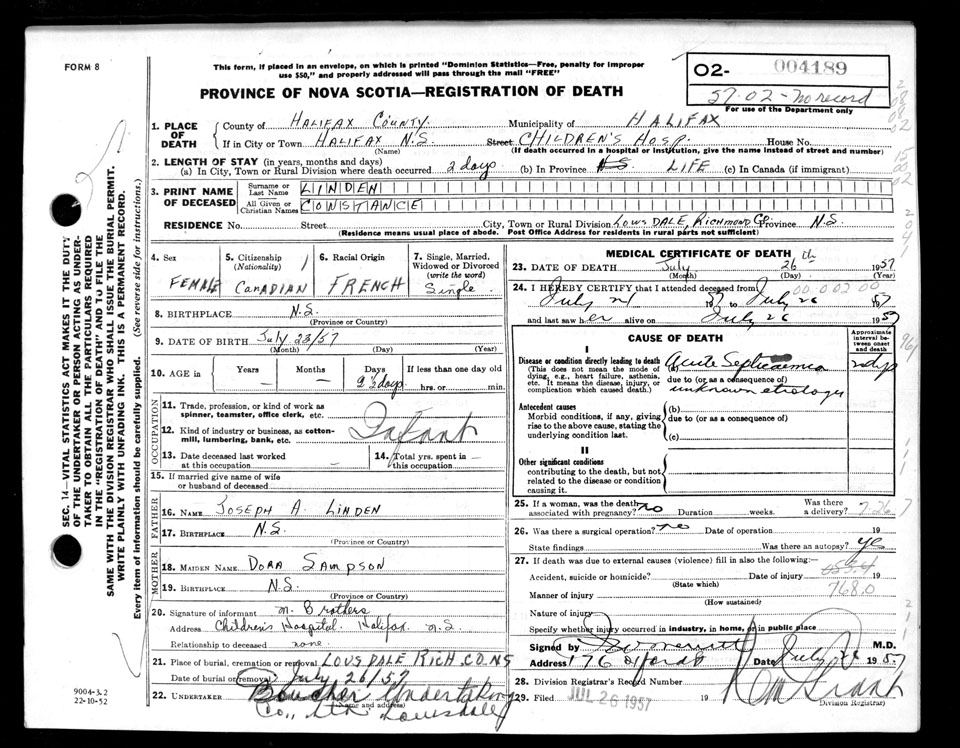 FORM 8
This form, if placed in an envelope, on which is printed "Dominion Statistics—Free, penalty for improper
use $50," and properly addressed will pass through the mail "FREE"
PROVINCE OF NOVA SCOTIA—REGISTRATION OF DEATH
O2- 004189
57-02-No record
For use of the Department only
1. PLACE OF DEATH
County of HALIFAX COUNTY Municipality of HALIFAX
If in City or Town HALIFAX N.S. Street CHILDREN'S HOSP. House No.
(Name) (If death occurred in a hospital or institution, give the name instead of street and number)
2. LENGTH OF STAY (in years, months and days)
(a) In City, Town or Rural Division where death occurred 2 days (b) In Province N.S. LIFE (c) In Canada (if immigrant)
3. PRINT NAME OF DECEASED
Surname or Last Name LINDEN
All Given or Christian Names CONSTANCE
RESIDENCE No. Street City, Town or Rural Division LOUSDALE, RICHMOND CO. Province N.S.
(Residence means usual place of abode. Post Office Address for residents in rural parts not sufficient)
4. Sex
FEMALE
5. Citizenship (Nationality)
Canadian
6. Racial Origin
FRENCH
7. Single, Married, Widowed or Divorced (write the word)
Single
8. BIRTHPLACE N.S.
(Province or Country)
9. DATE OF BIRTH July 23/57
(Month) (Day) (Year)
10. AGE in Years Months Days If less than one day old
— — hrs. or min.
OCCUPATION
11. Trade, profession, or kind of work as spinner, teamster, office clerk, etc.
12. Kind of industry or business, as cotton-mill, lumbering, bank, etc. Infant
13. Date deceased last worked at this occupation —
14. Total yrs. spent in this occupation —
15. If married give name of wife or husband of deceased
FATHER
16. NAME JOSEPH A. LINDEN
17. BIRTHPLACE N.S.
(Province or Country)
MOTHER
18. MAIDEN NAME DORA SAMPSON
19. BIRTHPLACE N.S.
(Province or Country)
20. Signature of informant M. Brothers
Address Children's Hospital. Halifax N.S.
Relationship to deceased none
21. Place of burial, cremation or removal LOUSDALE RICH. CO. NS
Date of burial or removal July 26/57
22. UNDERTAKER Boucher Undertaking
(Name and address)
Co., Ltd Louisdale
9004-3.2
22-10-52
MEDICAL CERTIFICATE OF DEATH
23. DATE OF DEATH July 26 th 1957
(Month) (Day) (Year)
24. I HEREBY CERTIFY that I attended deceased from 00 0 02 00
July 57 to July 26 57
and last saw her alive on July 26 1957
CAUSE OF DEATH
Approximate interval between onset and death
I
Disease or condition directly leading to death
(This does not mean the mode of dying, e.g., heart failure, asthenia, etc. It means the disease, injury, or complication which caused death.)
(a) Acute Septicaemia
due to (or as a consequence of)
unknown etiology
Antecedent causes
Morbid conditions, if any, giving rise to the above cause, stating the underlying condition last.
(b)
due to (or as a consequence of)
(c)
II
Other significant conditions
contributing to the death, but not related to the disease or condition causing it.
25. If a woman, was the death associated with pregnancy? no Duration weeks. Was there a delivery? 7-26-7
26. Was there a surgical operation? no Date of operation 19
State findings Was there an autopsy? Yes
27. If death was due to external causes (violence) fill in also the following:—
Accident, suicide or homicide? Date of injury 19
(State which)
Manner of injury 768.0
(How sustained)
Nature of injury
Specify whether injury occurred in industry, in home, or in public place
Signed by M.D.
Address 176 Oxford Date July 26 1957
28. Division Registrar's Record Number
29. Filed JUL 26 1957 19
Division Registrar)
SEC. 14—VITAL STATISTICS ACT MAKES IT THE DUTY
OF THE UNDERTAKER OR PERSON ACTING AS UNDER-
TAKER TO OBTAIN ALL THE PARTICULARS REQUIRED
IN THE "REGISTRATION OF DEATH" AND TO FILE THE
SAME WITH THE DIVISION REGISTRAR WHO SHALL ISSUE THE BURIAL PERMIT.
WRITE PLAINLY WITH UNFADING INK. THIS IS A PERMANENT RECORD.
Every item of information should be carefully supplied. (See reverse side for instructions.)